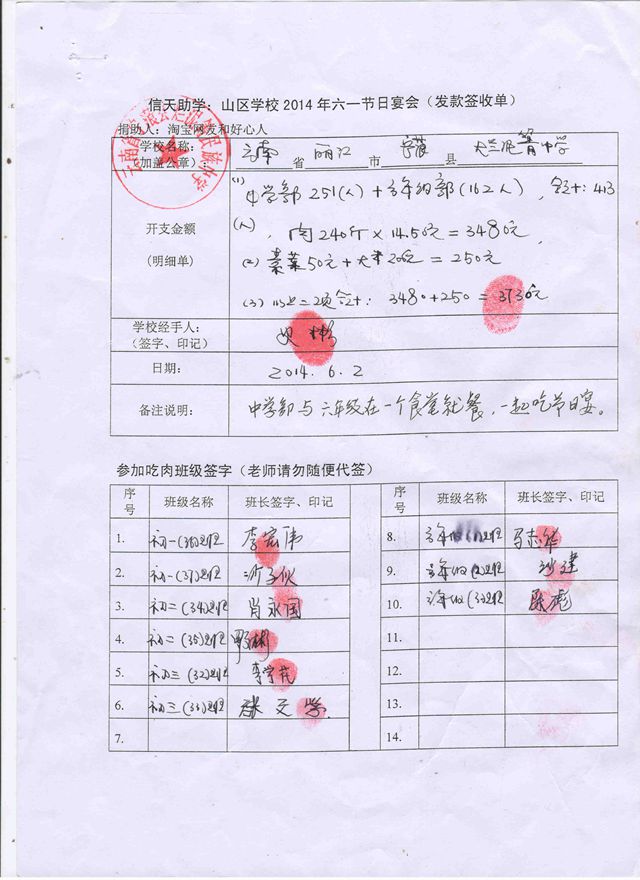 信天助学：山区学校2014年六一节日宴会（发款签收单）
捐助人：淘宝网友和好心人
学校名称：
（加盖公章）：
云南 省 丽江 市 宁蒗 县
中学
(1) 中学部251(人)+六年级部(162人)，合计：413
开支金额
(人)，肉240斤×14.50元=3480元，
(明细单)
(2) 素菜50元+大米200元=250元
(3) 以上二项合计：3480+250=3730元
学校经手人：
（签字、印记）
日期：
2014.6.2
备注说明：
中学部与六年级在一个食堂就餐，一起吃节日宴。
参加吃肉班级签字（老师请勿随便代签）
序号 班级名称 班长签字、印记 序号 班级名称 班长签字、印记
1. 初一(36)班 李宏伟 8. 六年级 班
2. 初一(37)班 9. 六年级(2)班
3. 初二(34)班 肖永国 10. 六年级(3)班
4. 初二(35)班 11.
5. 初三(32)班 李学花 12.
6. 初三(33)班 张文学 13.
7. 14.